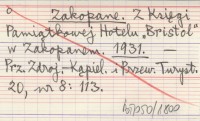 Zakopane. Z Księgi
Pamiątkowej Hotelu „Bristol"
w Zakopanem. 1931. —
Prz. Zdroj.-Kąpiel. i Przew. Turyst.
20, nr 8: 113.